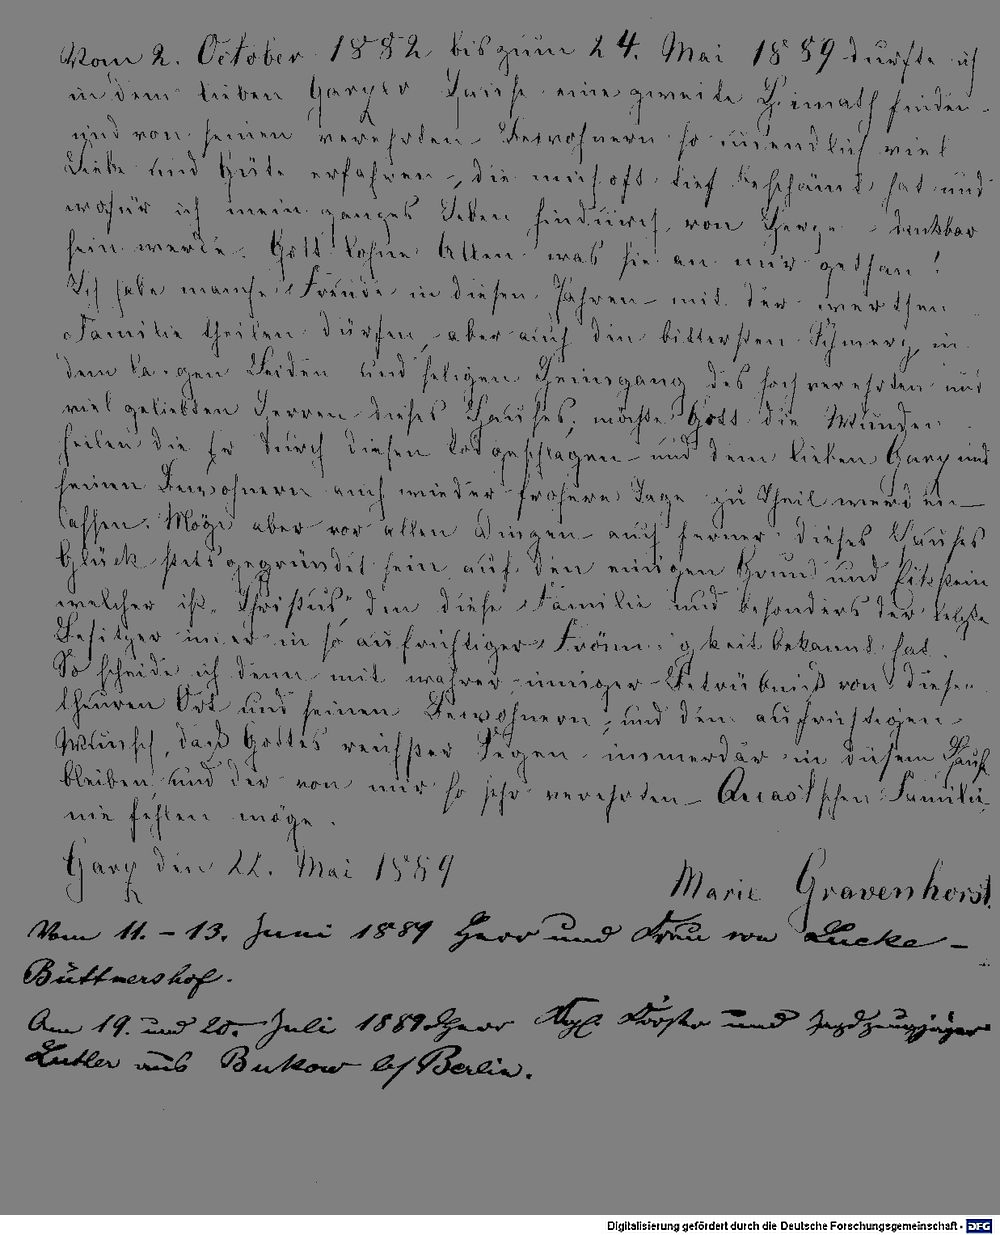 Vom 2. October 1882 bis zum 24. Mai 1889 durfte ich
in dem lieben Garzer Hause eine zweite Heimath finden
und von seinen verehrten Bewohnern so unendlich viel
Liebe und Güte erfahren, die mich oft tief beschämt hat und
wofür ich mein ganzes Leben hindurch von Herzen dankbar
sein werde. Gott lohne Allen was sie an mir gethan!
Ich habe manche Freude in diesen Jahren mit der werthen
Familie theilen dürfen, aber auch den bittersten Schmerz, in
dem langen Leiden und seligen Heimgang des hochverehrten und
viel geliebten Herren dieses Hauses, möchte Gott die Wunden
heilen die Er durch diesen Tod geschlagen und dem lieben Garz und
seinen Bewohnern auch wieder frohere Tage zu Theil werden
lassen. Möge aber vor allen Dingen auch ferner dieses Hauses
Glück stets gegründet sein auf den einigen Grund und Eckstein
welcher ist „Christus“, den diese Familie und besonders der letzte
Besitzer immer in so aufrichtiger Frömmigkeit bekannt hat.
So scheide ich denn mit wahrer inniger Betrübniß von diesem
theuren Ort und seinen Bewohnern, und dem aufrichtigen
Wunsch, daß Gottes reichster Segen immerdar in diesem Hause
bleiben, und der von mir so sehr verehrten Quast'schen Familie
nie fehlen möge.
Garz den 22. Mai 1889
Marie Gravenhorst.
Vom 11. – 13. Juni 1889 Herr und Frau von Lucke –
Büttnershof.
Am 19. und 20. Juli 1889 Herr Kgl. Förster und
aus Bukow b/ Berlin.
Digitalisierung gefördert durch die Deutsche Forschungsgemeinschaft - DFG